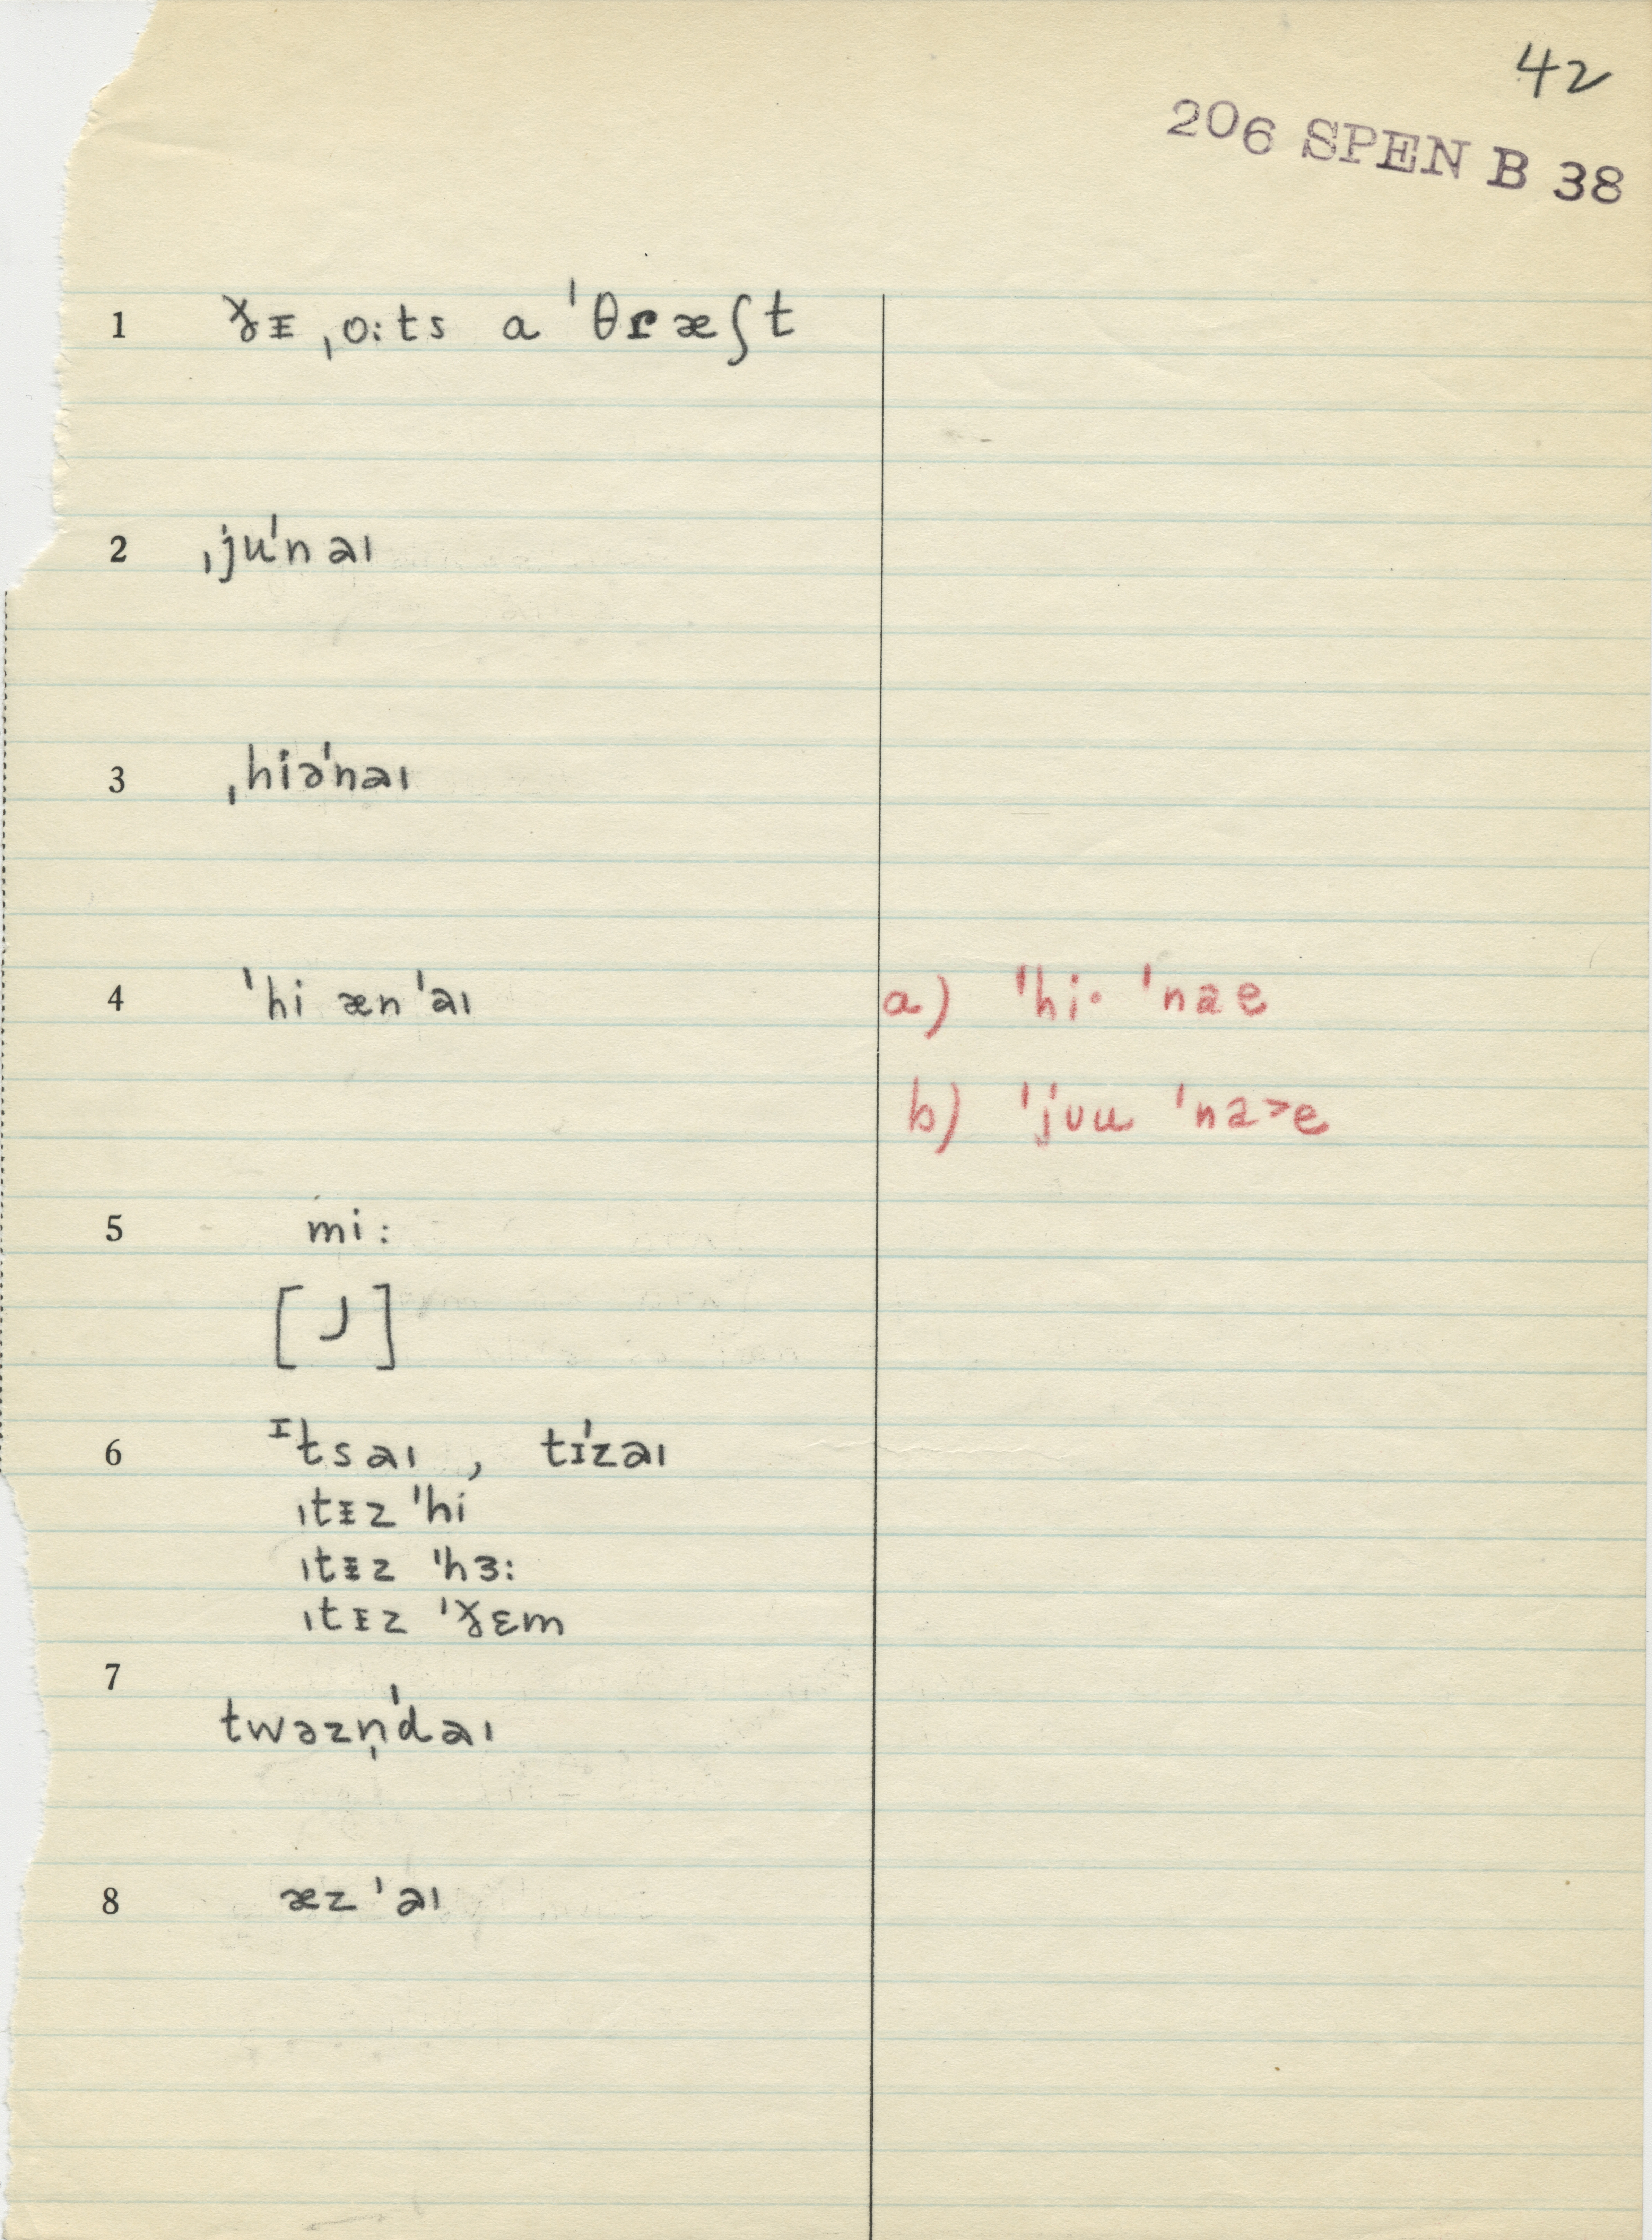 42
206 SPEN B 38
1 ɣᵻ ˌo:ts a ˈθɾæʃt
2 ˌjuˈnaɪ
3 ˌhiəˈnaɪ
4 ˈhi ænˈaɪ a) ˈhi· ˈnae
b) ˈjʊu ˈna>e
5 mi:
[ ]
6 ᴵtsaɪ , tɪˈzaɪ
ˌtᵻz ˈhi
ˌtᵻz ˈhɜ:
ˌtᵻz ˈɣɛm
7 twəzn̩ˈdaɪ
8 æzˈaɪ